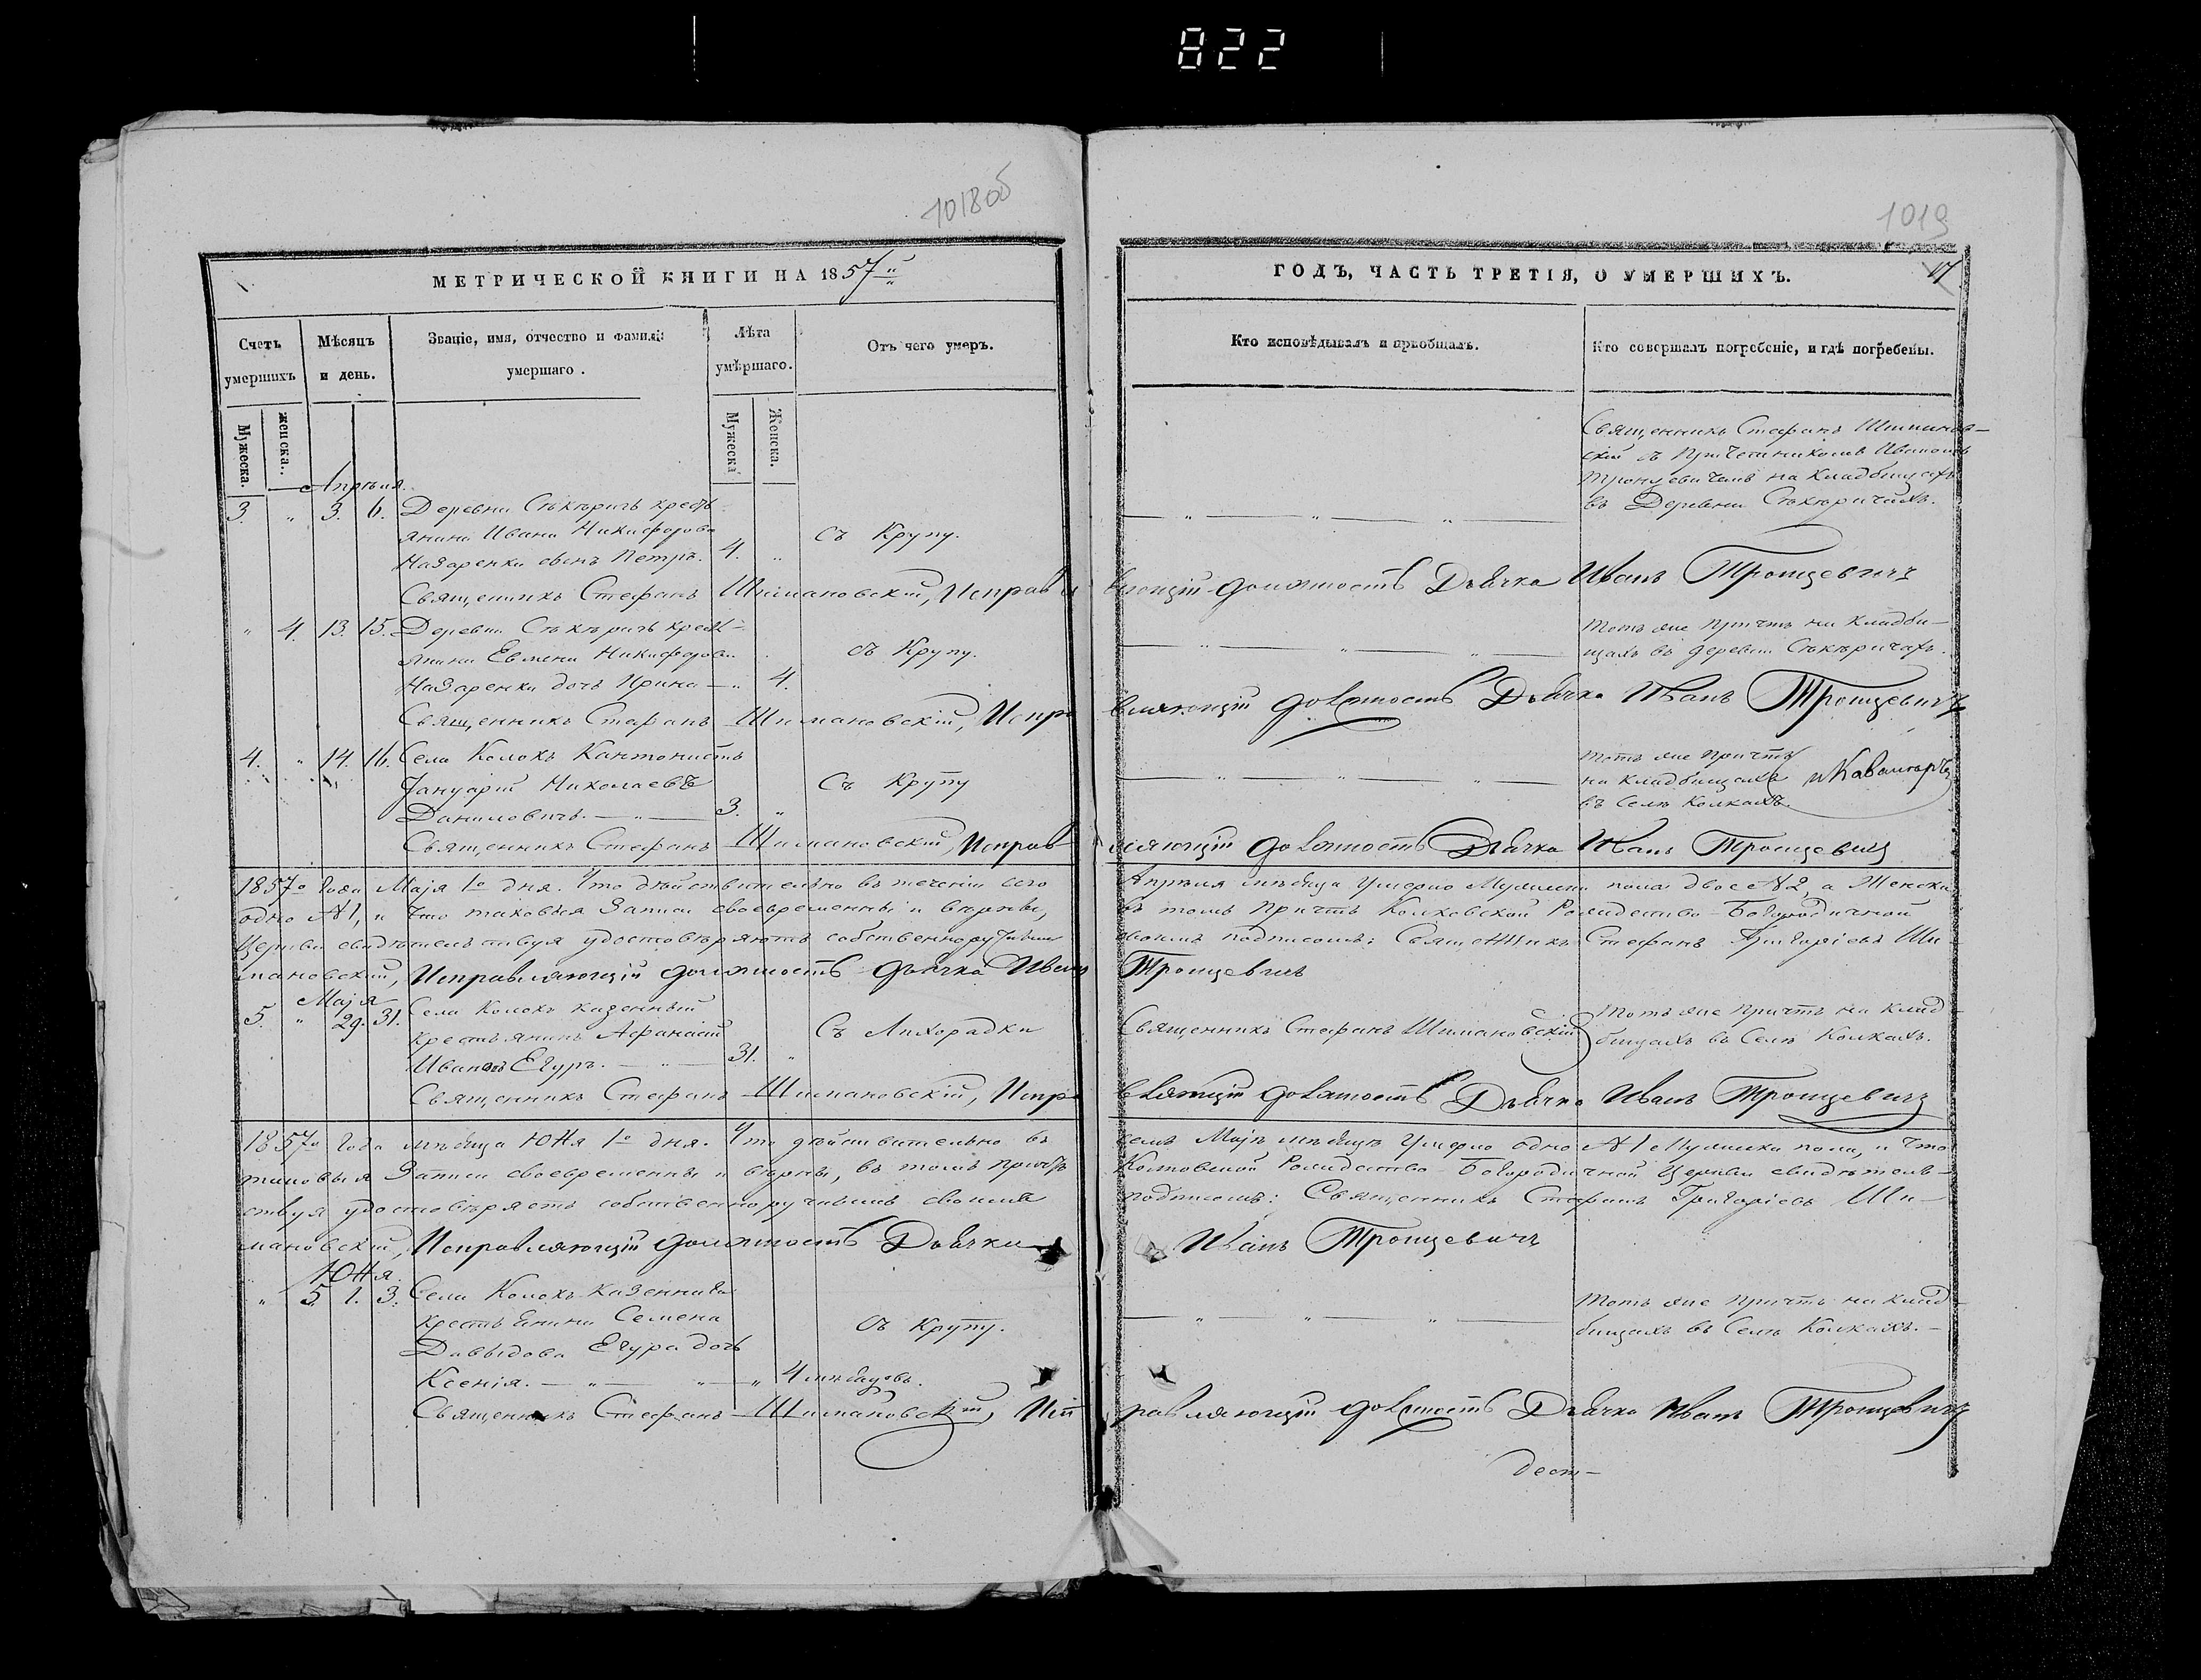 822
1018об
1019
МЕТРИЧЕСКОЙ КНИГИ НА 1857й
ГОДЪ, ЧАСТЬ ТРЕТІЯ, О УМЕРШИХЪ.
17
Счетъ умершихъ
Мѣсяцъ и день.
Званіе, имя, отчество и фамилія умершаго.
Лѣта умѣршаго.
Отъ чего умеръ.
Кто исповѣдывалъ и пріобщалъ.
Кто совершалъ погребеніе, и гдѣ погребены.
Мужеска.
женска.
Мужеска
Женска.
Апрѣля.
3. " 3. 6. Деревни Сѣкѣричъ крестъ
янина Ивана Никифорова
Назаренки сынъ Петръ. 4. "
Съ Крупу.
Священникъ Стефанъ Шиманов-
скій съ Причетникомъ Иваномъ
Тронцевичемъ на кладбищахъ
въ Деревни Сѣкѣричахъ.
Священникъ Стефанъ Шимановскій, Исправляющій должность Дьячка Иванъ Тронцевичъ
" 4. 13. 15. Деревни Сѣкѣричъ крест-
янина Евмена Никифорова
Назаренки дочь Ирина — " 4.
Съ Крупу.
тотъ же причтъ на кладби-
щахъ въ деревни Сѣкѣричахъ.
Священникъ Стефанъ Шимановскій, Исправляющій должность Дьячка Иванъ Тронцевичъ
4. " 14. 16. Села Колокъ Кантонистъ
Януарій Николаевъ
Даниловичъ. — " — 3. "
Съ Крупу
тотъ же причтъ
на кладбищахъ
въ Селѣ Колкахъ.
Священникъ Стефанъ Шимановскій, Исправляющій должность Дьячка Иванъ Тронцевичъ
1857о года Маія 1о дня. Что дѣйствительно въ теченіи сего Апрѣля мѣсяца умерло Мужеска пола двое №2, а Женска
одно №1, и что таковыя Записи своевременны и вѣрны, въ томъ Причтъ Колковской Рождество-Богородичной
Церкви свидѣтельствуя удостовѣряютъ собственноручнымъ своимъ подписомъ: Священникъ Стефанъ Григоріевъ Ши-
мановскій, Исправляющій должность дьячка Иванъ Тронцевичъ
Маія
5. " 29. 31. Села Колокъ казенный
крестьянинъ Афанасій
Ивановъ Егуръ. — " — 31. "
Съ Лихорадки
Священникъ Стефанъ Шимановскій
Тотъ же причтъ на клад-
бищахъ въ Селѣ Колкахъ.
Священникъ Стефанъ Шимановскій, Исправляющій должность Дьячка Иванъ Тронцевичъ
1857о года мѣсяца Юня 1о дня. Что дѣйствительно въ семъ Маіѣ мѣсяцѣ умерло одно №1 Мужеска пола, и что
таковыя Записи своевременны и вѣрны, въ томъ причтъ Колковской Рождество-Богородичной Церкви свидѣтель-
ствуя удостовѣряетъ собственноручнымъ своимъ подписомъ: Священникъ Стефанъ Григоріевъ Ши-
мановскій, Исправляющій должность Дьячка Иванъ Тронцевичъ
Юня.
" 5. 1. 3. Села Колокъ казеннаго
крестьянина Семена
Давыдова Егура дочь
Ксенія. — " — " — " 4 мѣсяцовъ.
Съ Крупу.
тотъ же причтъ на клад-
бищахъ въ Селѣ Колкахъ. —
Священникъ Стефанъ Шимановскій, Исправляющій должность Дьячка Иванъ Тронцевичъ